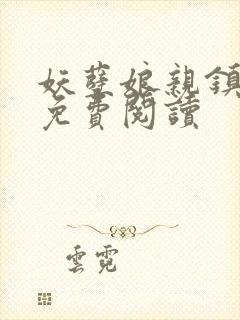 妖孽娘親鎮
免費閱讀
雲霓